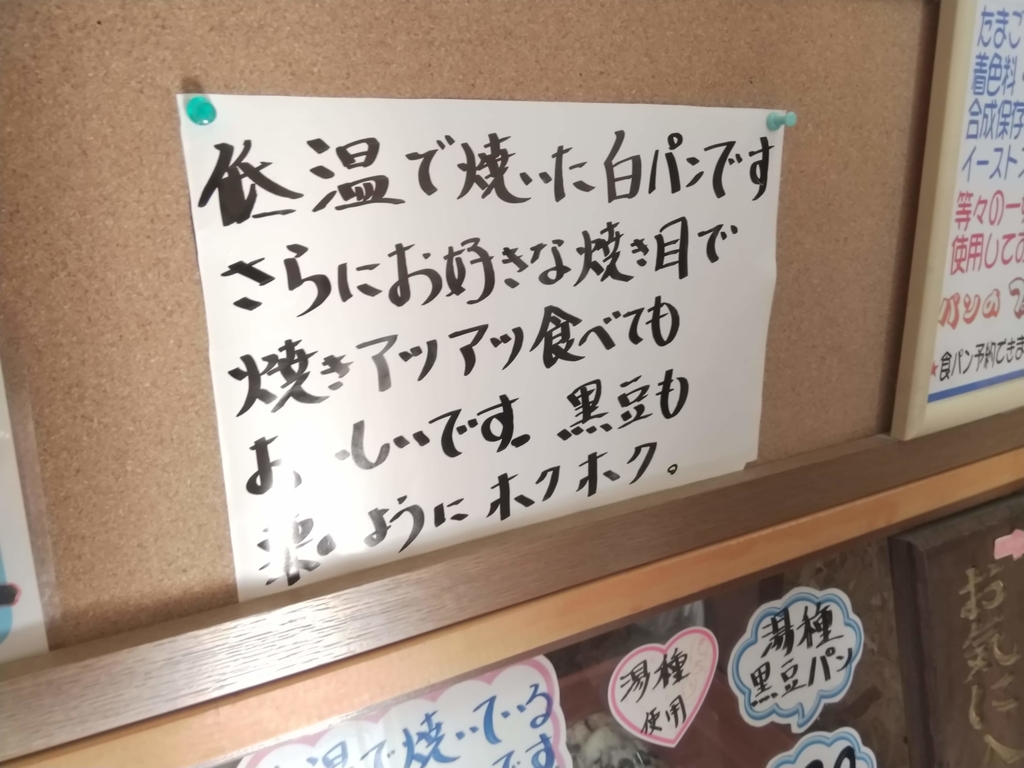 低温で焼いた白パンです
さらにお好きな焼き目で
焼きアツアツ食べても
お しいです。黒豆も
ようにホクホク。
たまご
着色料
合成保存
イースト
等々の一
使用してお
パンの
★食パン予約できま
湯種
使用
湯種
黒豆パン
温で焼いている
です
お気に入